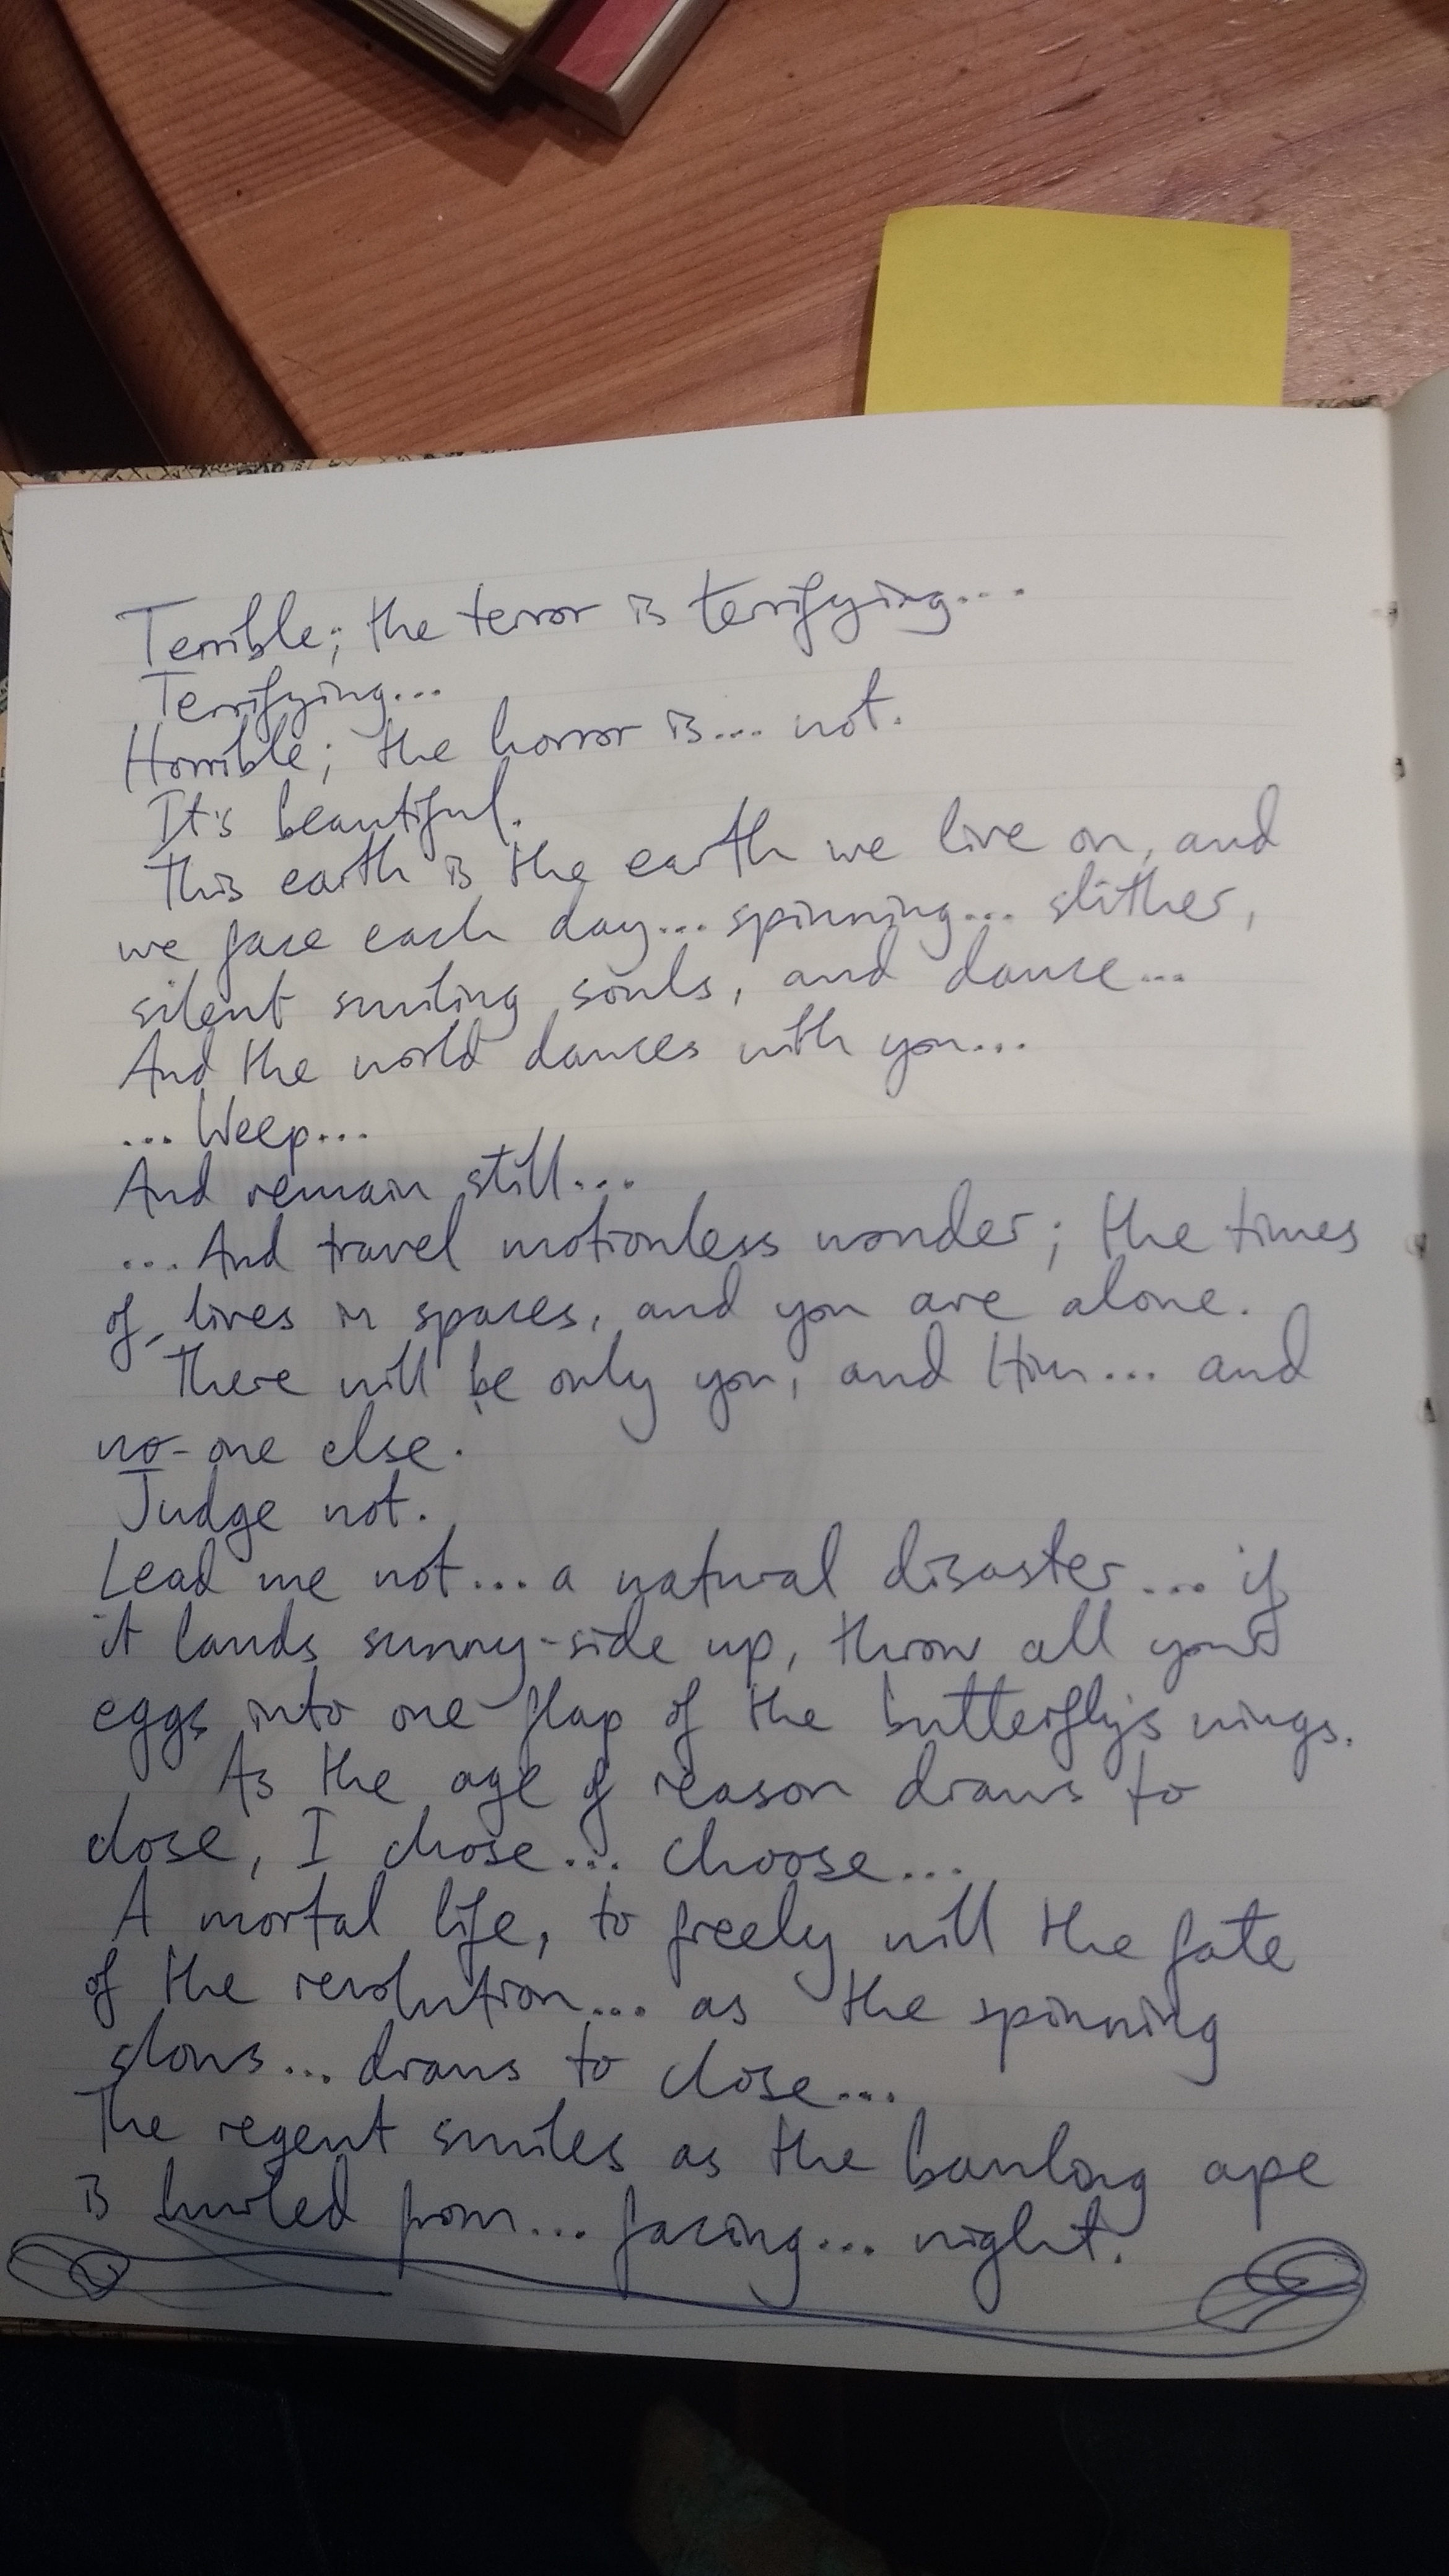 Terrible; the terror is terrifying...
Terrifying...
Horrible; the horror is... not.
It's beautiful.
This earth is the earth we live on, and
we face each day... spinning... slither,
silent smiling souls, and dance...
And the world dances with you...
... Weep...
And remain still...
... And travel motionless wonder; the times
of lives in spaces, and you are alone.
There will be only you, and Him... and
no-one else.
Judge not.
Lead me not... a natural disaster... if
it lands sunny-side up, throw all your
eggs into one flap of the butterfly's wings.
As the age of reason draws to
close, I chose... choose...
A mortal life, to freely will the fate
of the revolution... as the spinning
slows... draws to close...
The regent smiles as the bawling ape
is hurled from... facing... night.